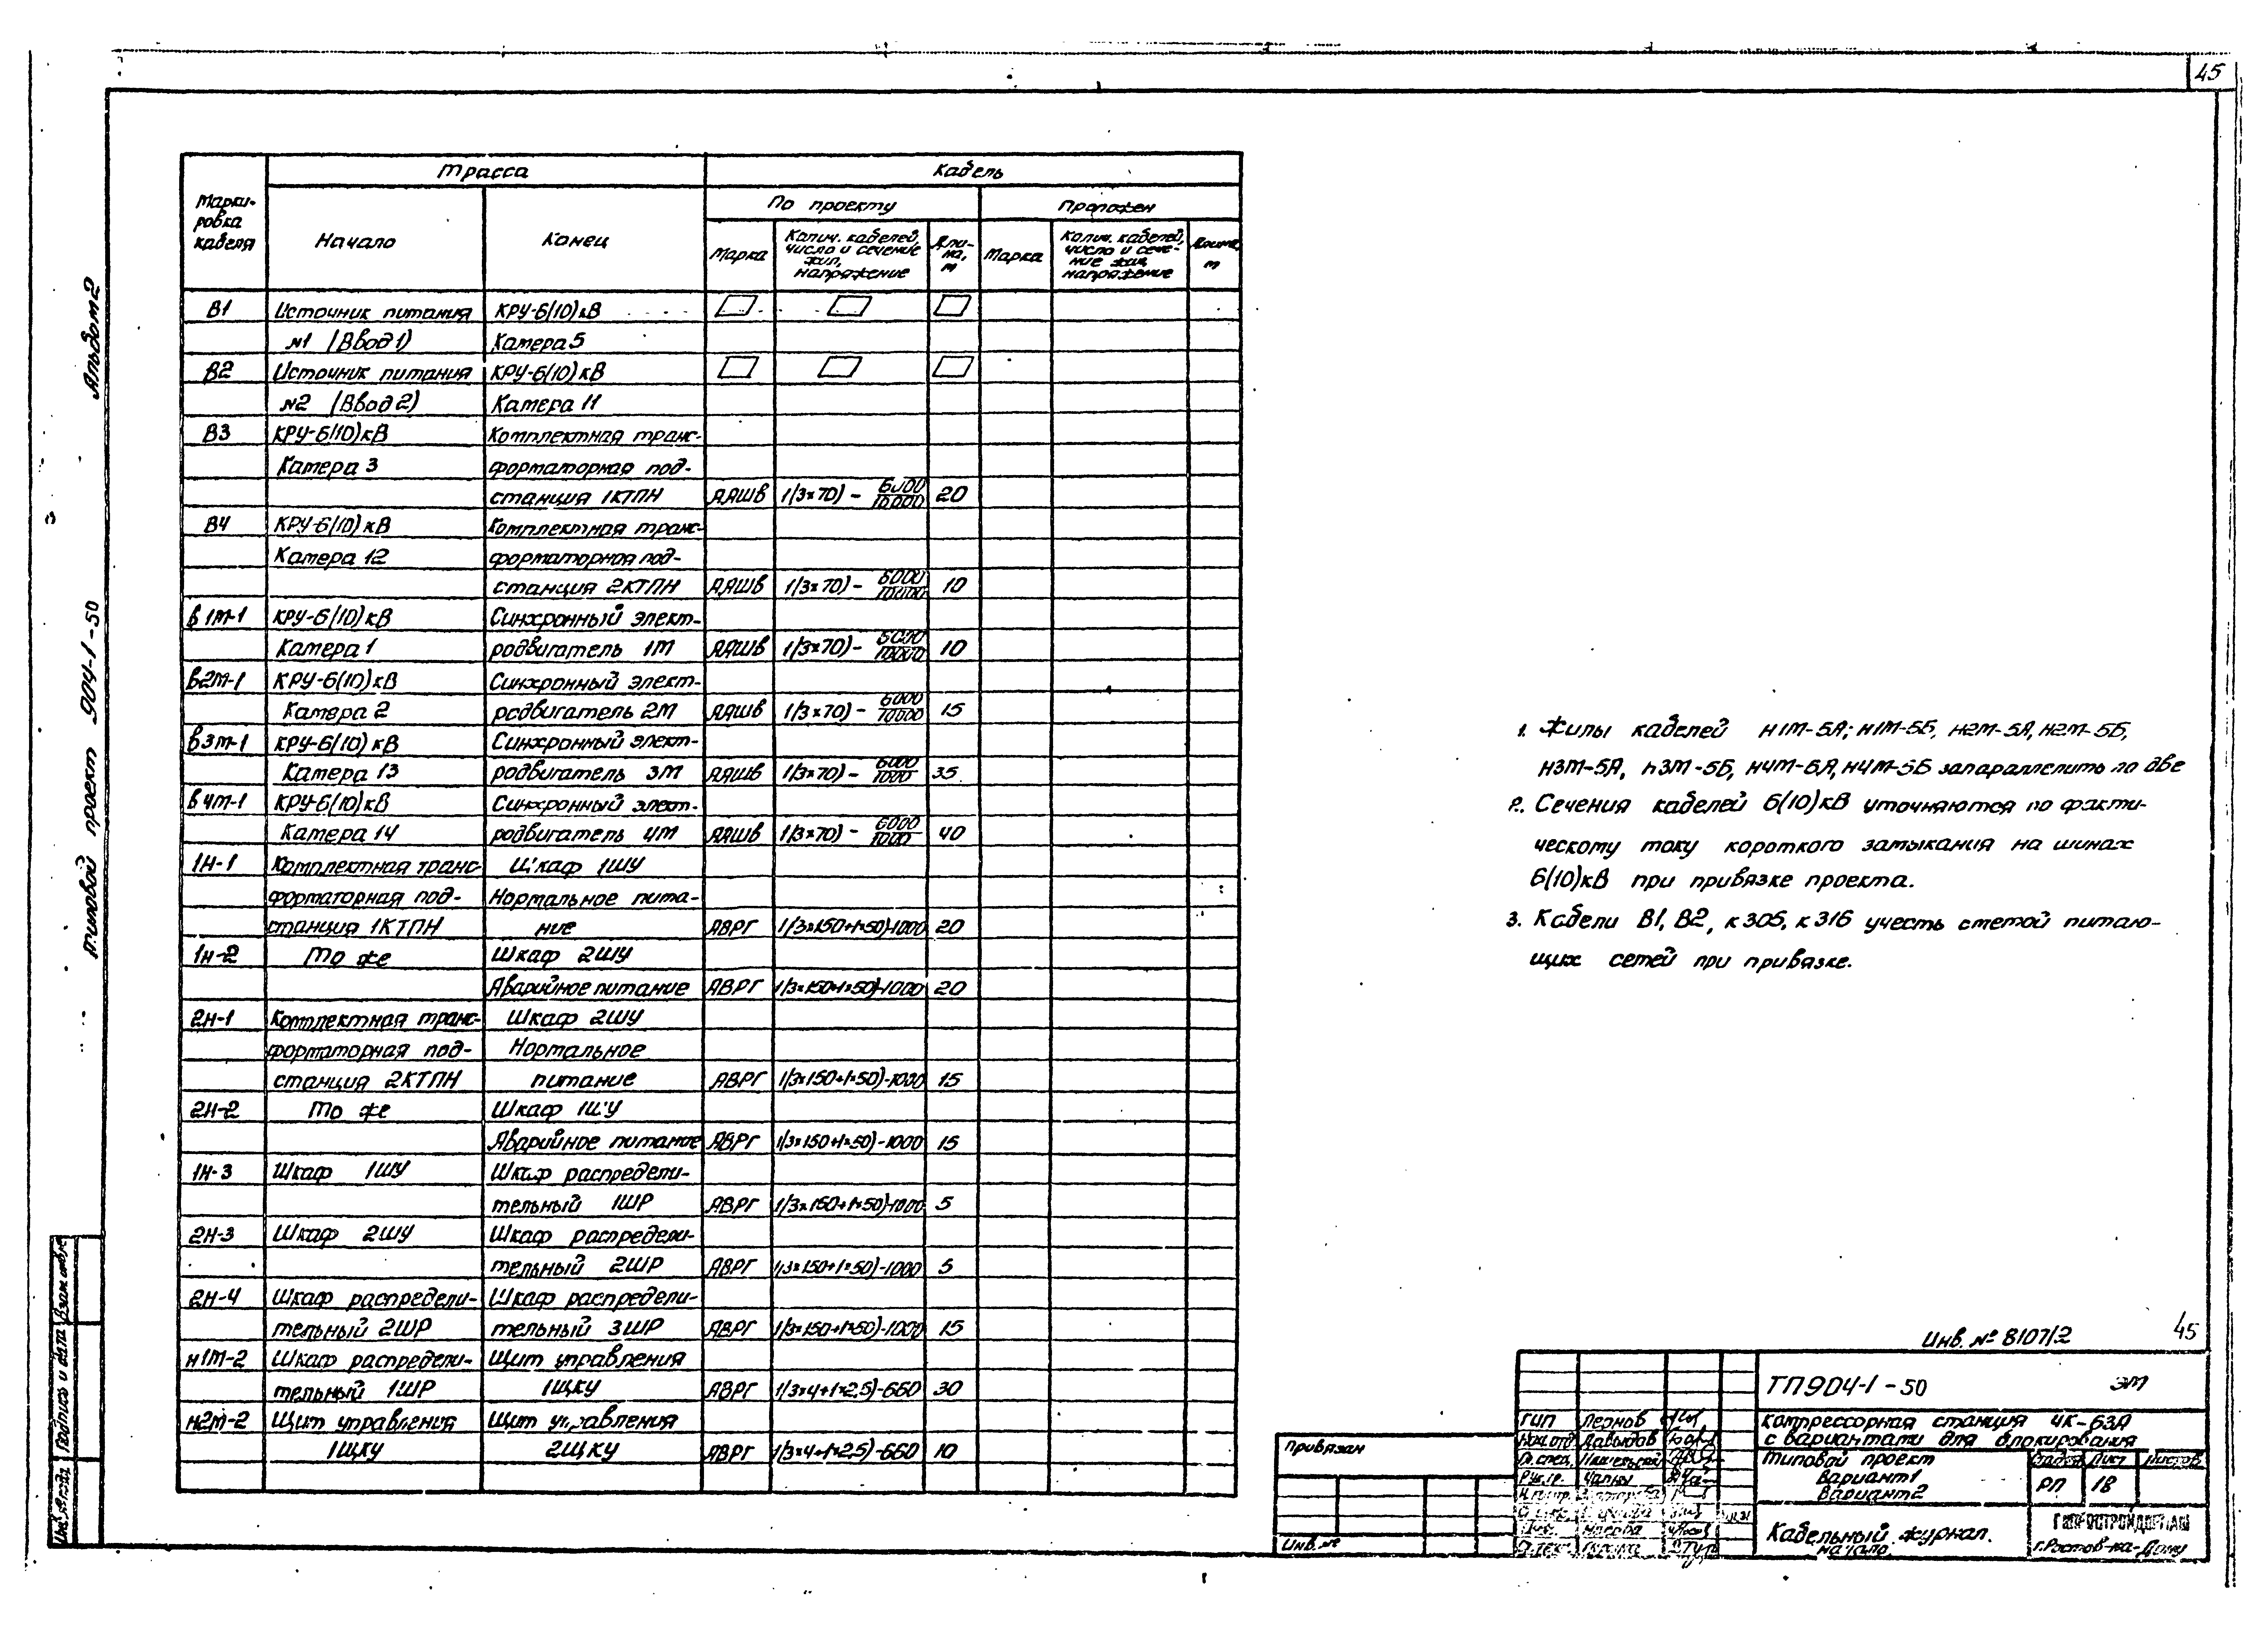 45
Альбом 2
Типовой проект 904-1-50
Трасса
Кабель
Марки-
ровка
кабеля
Начало
Конец
По проекту
Проложен
Марка
Колич. кабелей,
число и сечение
жил,
напряжение
Дли-
на,
м
Марка
Колич. кабелей,
число и сече-
ние жил,
напряжение
Длина,
м
В1 Источник питания КРУ-6(10)кВ
№1 (Ввод 1) Камера 5
В2 Источник питания КРУ-6(10)кВ
№2 (Ввод 2) Камера 11
В3 КРУ-6(10)кВ Комплектная транс-
Камера 3 форматорная под-
станция 1КТПН ААШВ 1(3×70) - 6000/10000 20
В4 КРУ-6(10)кВ Комплектная транс-
Камера 12 форматорная под-
станция 2КТПН ААШВ 1(3×70) - 6000/10000 10
В1М-1 КРУ-6(10)кВ Синхронный элект-
Камера 1 родвигатель 1М ААШВ 1(3×70) - 6000/10000 10
В2М-1 КРУ-6(10)кВ Синхронный элект-
Камера 2 родвигатель 2М ААШВ 1(3×70) - 6000/10000 15
В3М-1 КРУ-6(10)кВ Синхронный элект-
Камера 13 родвигатель 3М ААШВ 1(3×70) - 6000/1000 35
В4М-1 КРУ-6(10)кВ Синхронный элект-
Камера 14 родвигатель 4М ААШВ 1(3×70) - 6000/1000 40
1Н-1 Комплектная транс- Шкаф 1ШУ
форматорная под- Нормальное пита-
станция 1КТПН ние АВРГ 1(3×150+1×50)-1000 20
1Н-2 То же Шкаф 2ШУ
Аварийное питание АВРГ 1(3×150+1×50)-1000 20
2Н-1 Комплектная транс- Шкаф 2ШУ
форматорная под- Нормальное
станция 2КТПН питание АВРГ 1(3×150+1×50)-1000 15
2Н-2 То же Шкаф 1ШУ
Аварийное питание АВРГ 1(3×150+1×50)-1000 15
1Н-3 Шкаф 1ШУ Шкаф распредели-
тельный 1ШР АВРГ 1(3×150+1×50)-1000 5
2Н-3 Шкаф 2ШУ Шкаф распредели-
тельный 2ШР АВРГ 1(3×150+1×50)-1000 5
2Н-4 Шкаф распредели- Шкаф распредели-
тельный 2ШР тельный 3ШР АВРГ 1(3×150+1×50)-1000 15
Н1М-2 Шкаф распредели- Щит управления
тельный 1ШР 1ЩКУ АВРГ 1(3×4+1×2,5)-660 30
Н2М-2 Щит управления Щит управления
1ЩКУ 2ЩКУ АВРГ 1(3×4+1×2,5)-660 10
1. Жилы кабелей Н1М-5А; Н1М-5Б, Н2М-5А, Н2М-5Б,
Н3М-5А, Н3М-5Б, Н4М-5А, Н4М-5Б запараллелить по две
2. Сечения кабелей 6(10)кВ уточняются по факти-
ческому току короткого замыкания на шинах
6(10)кВ при привязке проекта.
3. Кабели В1, В2, К305, К316 учесть сметой питаю-
щих сетей при привязке.
Инв. № 8107/2
45
ТП904-1-50 ЭМ
Компрессорная станция 4К-63А
с вариантами для блокирования
Типовой проект
Вариант 1
Вариант 2
Стадия Лист Листов
РП 18
Кабельный журнал.
Начало.
ГИПРОСТРОЙДОРМАШ
г.Ростов-на-Дону
ГИП Леонов
Нач.отд. Давыдов
Гл.спец.
Рук.гр.
Привязан
Инв. №
Инв.№ подл.
Подпись и дата
Взам. инв. №